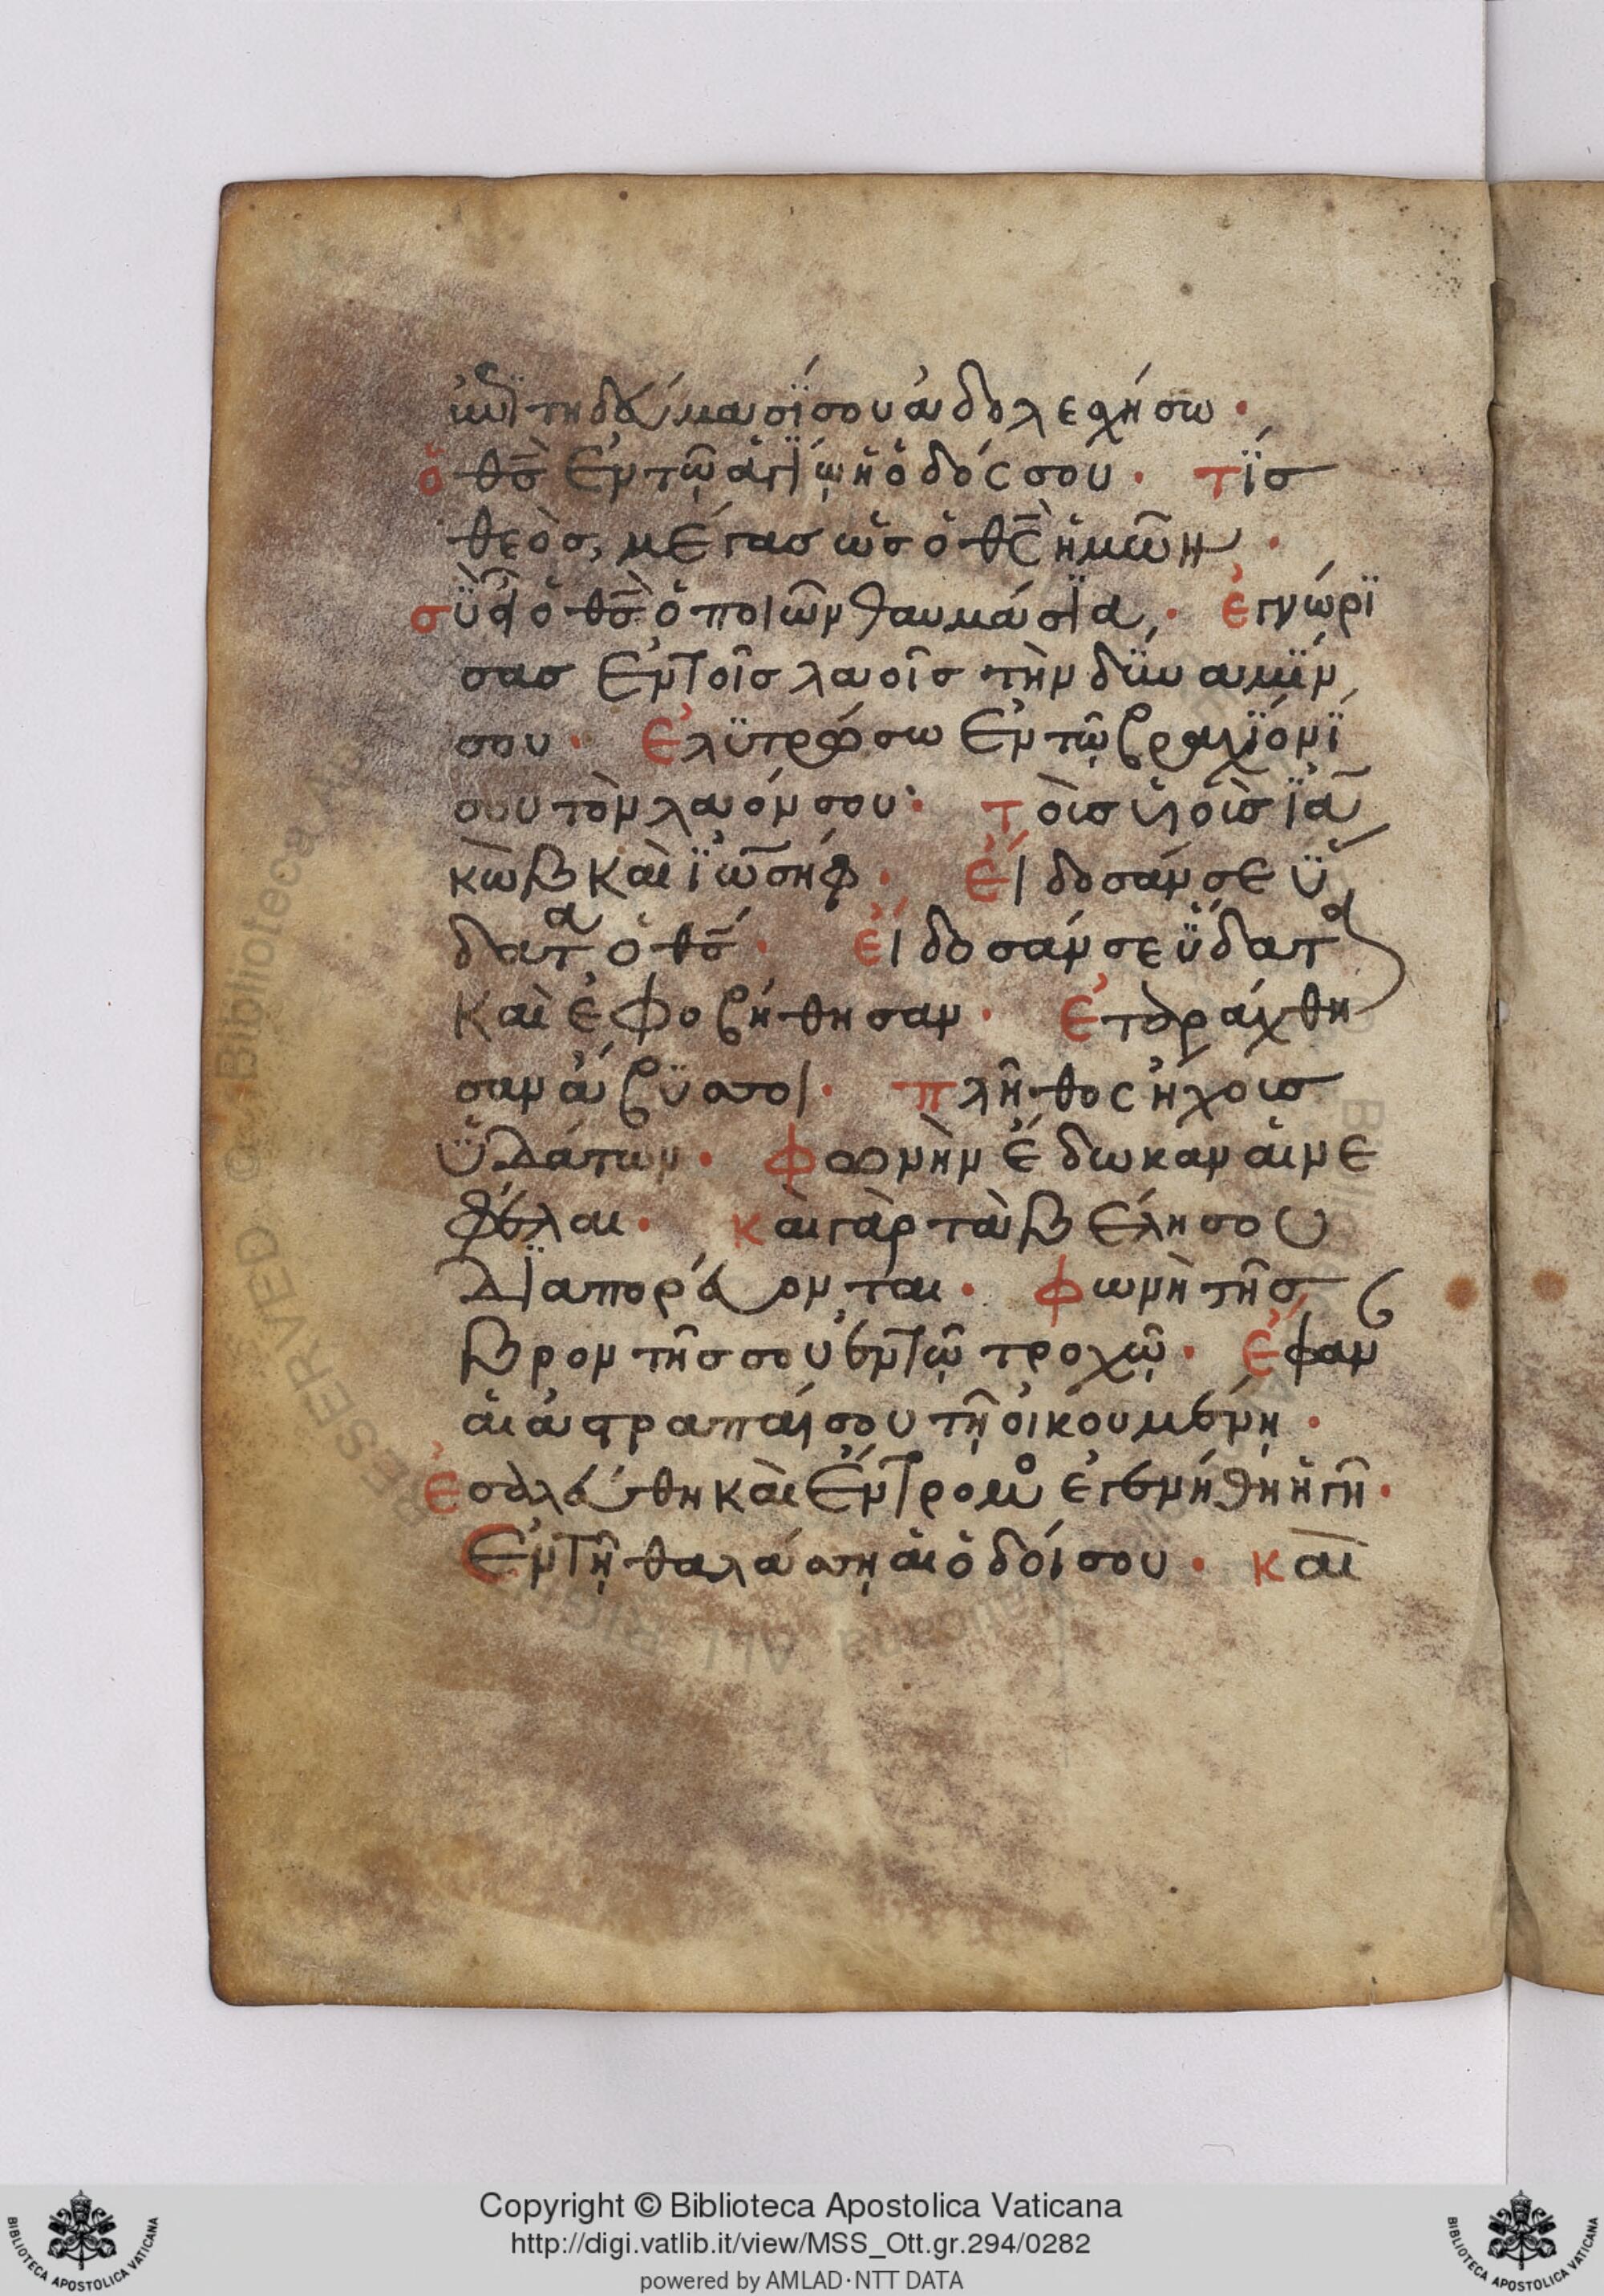 ἐπιτηδεύμασί σου ἀδολεσχήσω·
ὁ θ̅ς̅ ἐν τῷ ἁγίῳ ἡ ὁδός σου· τίσ
θεὸσ, μέγασ ὡσ ὁ θ̅ς̅ ἡμῶν·
σὺ εἶ ὁ θ̅ς̅ ὁ ποιῶν θαυμάσϊα· ἐγνώρϊ
σασ ἐν τοῖσ λαοῖσ τὴν δύναμϊν
σου· ἐλϋτρώσω ἐν τῷ βραχϊόνϊ
σου τὸν λαόν σου· τοῖσ υἱοῖσ ϊα
κὼβ καὶ ϊωσήφ· εἴδοσάν σε ὕ
δατα ὁ θ̅ς̅· εἴδοσάν σε ὕδατα
καὶ ἐφοβήθησαν· ἐταράχθη
σαν ἄβϋσσοι· πλῆθοσ ἤχουσ
ὑδάτων· φωνὴν ἔδωκαν αἱ νε
φέλαι· καὶ γὰρ τὰ βέλη σου
δϊαπορεύονται· φωνὴ τῆσ
βροντῆσ σου ἐν τῷ τροχῷ· ἔφαν
αἱ ἀστραπαί σου τῇ οἰκουμένῃ·
ἐσαλεύθη καὶ ἔντρομος ἐγενήθη ἡ γῆ·
Ἐν τῇ θαλάσσῃ αἱ ὁδοί σου· καὶ
Copyright © Biblioteca Apostolica Vaticana
http://digi.vatlib.it/view/MSS_Ott.gr.294/0282
powered by AMLAD·NTT DATA
BIBLIOTECA APOSTOLICA VATICANA
BIBLIOTECA APOSTOLICA VATICANA